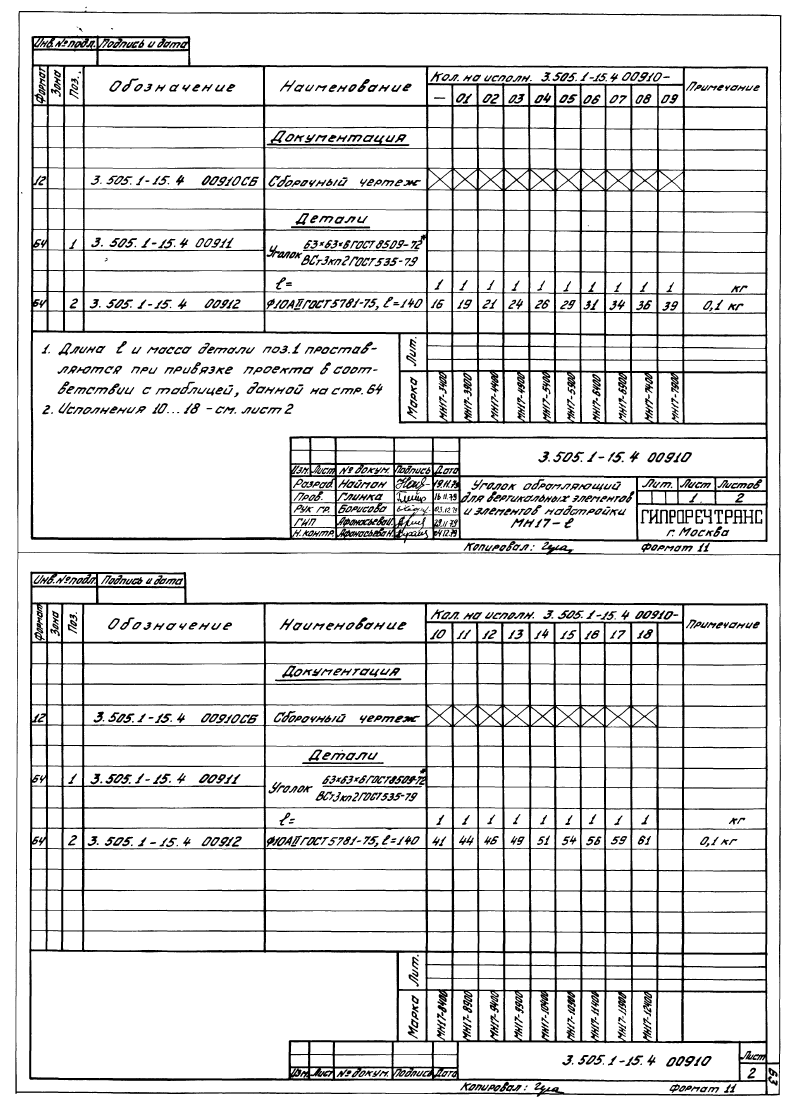 Инв. № подл. Подпись и дата
Формат Зона Поз. Обозначение Наименование Кол. на исполн. 3.505.1-15.4 00910- Примечание
— 01 02 03 04 05 06 07 08 09
Документация
12 3.505.1-15.4 00910СБ Сборочный чертеж
Детали
БЧ 1 3.505.1-15.4 00911 Уголок 63×63×6 ГОСТ 8509-72*
ВСт3кп2 ГОСТ 535-79
ℓ= 1 1 1 1 1 1 1 1 1 1 кг
БЧ 2 3.505.1-15.4 00912 Ф10АII ГОСТ 5781-75, ℓ=140 16 19 21 24 26 29 31 34 36 39 0,1 кг
1. Длина ℓ и масса детали поз.1 простав-
ляются при привязке проекта в соот-
ветствии с таблицей, данной на стр. 64
2. Исполнения 10...18 - см. лист 2
Лит.
Марка МН17-3400 МН17-3900 МН17-4400 МН17-4900 МН17-5400 МН17-5900 МН17-6400 МН17-6900 МН17-7400 МН17-7900
3.505.1-15.4 00910
Изм. Лист № докум. Подпись Дата
Разраб. Найман 19.11.79
Пров. Глинка 16.11.79
Рук. гр. Борисова 03.12.79
ГИП Афанасьева 29.11.79
Н. контр. Афанасьева 04.12.79
Уголок обрамляющий
для вертикальных элементов
и элементов надстройки
МН17-ℓ
Лит. Лист Листов
1 2
ГИПРОРЕЧТРАНС
г. Москва
Копировал: Формат 11
Инв. № подл. Подпись и дата
Формат Зона Поз. Обозначение Наименование Кол. на исполн. 3.505.1-15.4 00910- Примечание
10 11 12 13 14 15 16 17 18
Документация
12 3.505.1-15.4 00910СБ Сборочный чертеж
Детали
БЧ 1 3.505.1-15.4 00911 Уголок 63×63×6 ГОСТ 8509-72*
ВСт3кп2 ГОСТ 535-79
ℓ= 1 1 1 1 1 1 1 1 1 кг
БЧ 2 3.505.1-15.4 00912 Ф10АII ГОСТ 5781-75, ℓ=140 41 44 46 49 51 54 56 59 61 0,1 кг
Лит.
Марка МН17-8400 МН17-8900 МН17-9400 МН17-9900 МН17-10400 МН17-10900 МН17-11400 МН17-11900 МН17-12400
Изм. Лист № докум. Подпись Дата
3.505.1-15.4 00910
Лист
2
63
Копировал: Формат 11